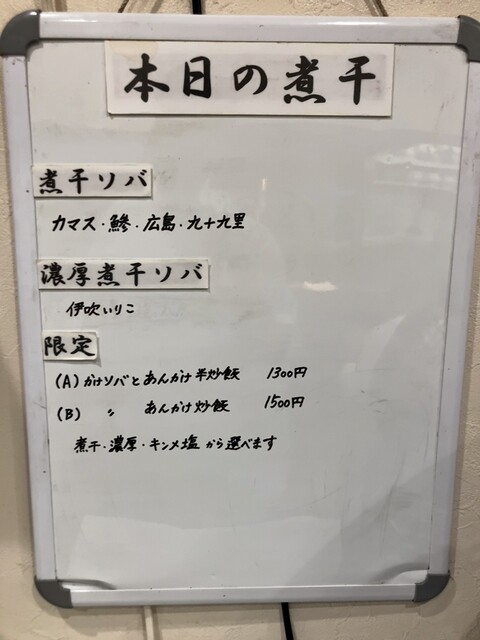 本日の煮干
煮干ソバ
カマス・鯵・広島・九十九里
濃厚煮干ソバ
伊吹いりこ
限定
(A) かけソバとあんかけ半炒飯 1300円
(B) 〃 あんかけ炒飯 1500円
煮干・濃厚・キンメ塩から選べます